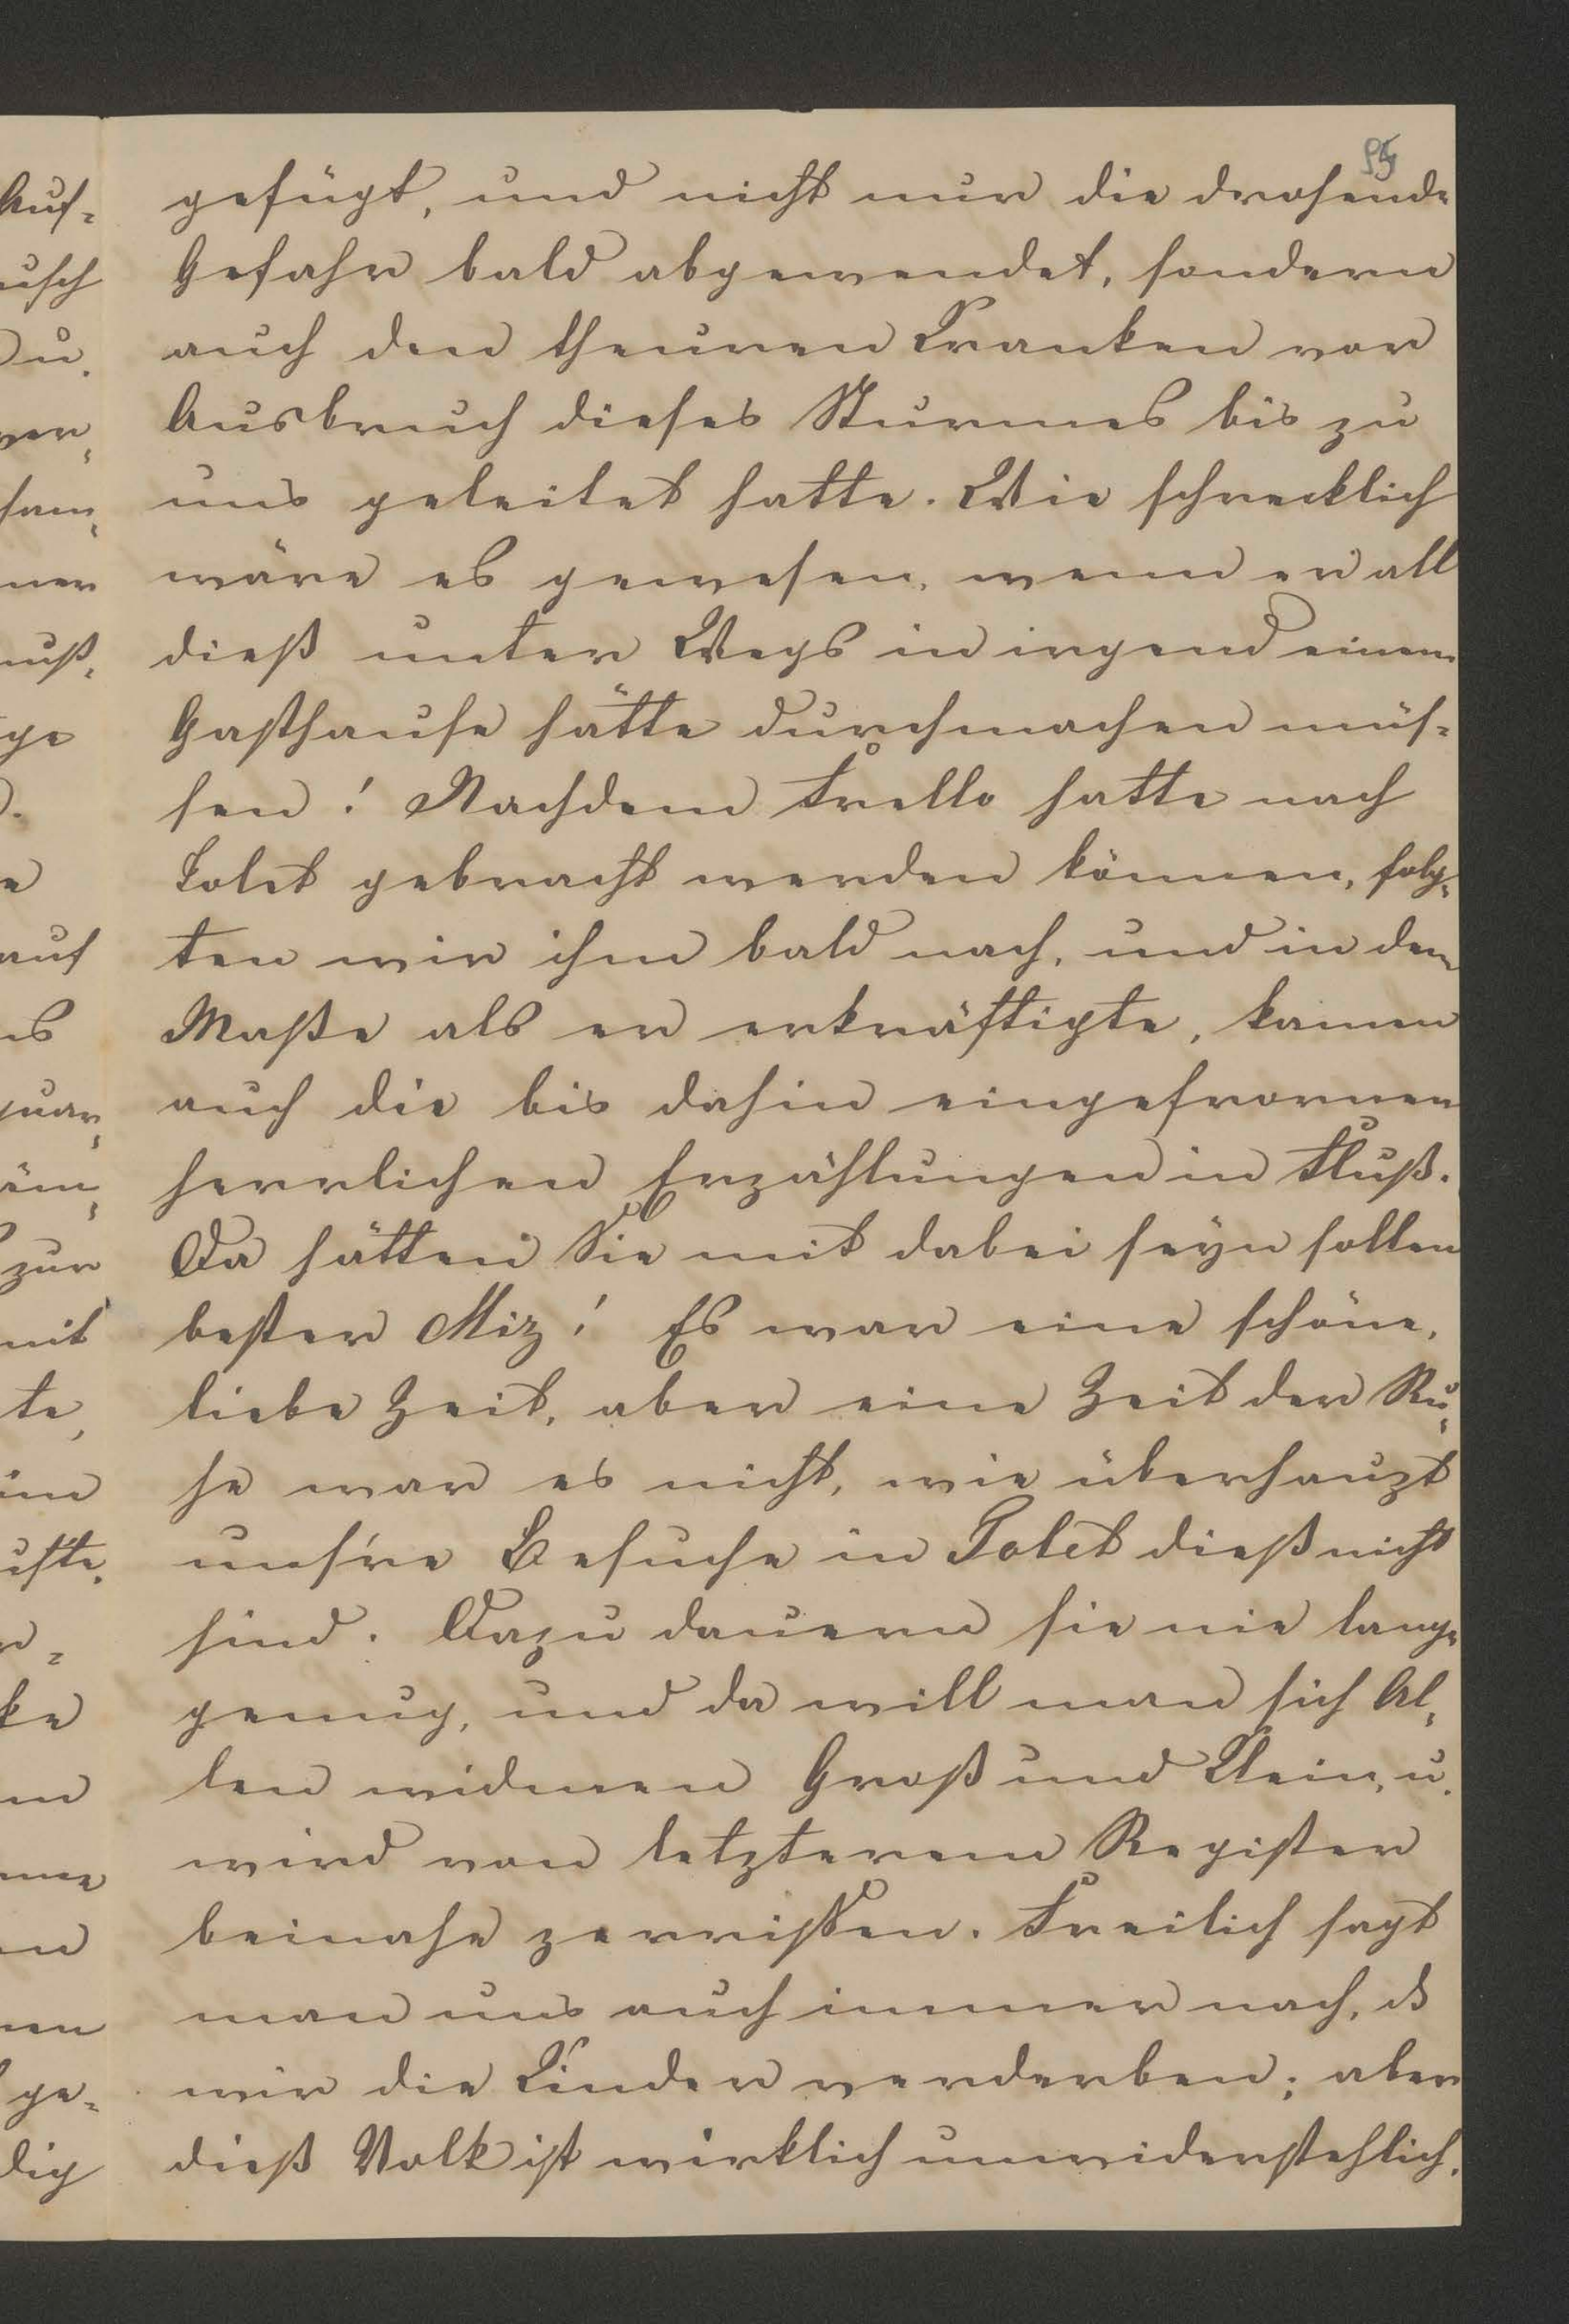 95
gefügt, und nicht nur die drohende
Gefahr bald abgewendet, sondern
auch den theuren Kranken vor
Ausbruch dieses Sturmes bis zu
uns geleitet hatte. Wie schrecklich
wäre es gewesen, wenn er all
dieß unter Wegs in irgend einem
Gasthause hätte durchmachen müs-
sen! Nachdem Frello hatte nach
Tolet gebracht werden können, folg-
ten wir ihm bald nach, und in dem
Maße als er erkräftigte, kamen
auch die bis dahin eingefrornen
herrlichen Erzählungen in Fluß.
Da hätten Sie mit dabei seyn sollen
bester Miz! Es war eine schöne,
liebe Zeit, aber eine Zeit der Ru-
he war es nicht, wie überhaupt
uns're Besuche in Tolet dieß nicht
sind. Dazu dauern sie nie lange
genug, und da will man sich Al-
len widmen Groß und Klein, u.
wird von letzterem Register
beinahe zerrissen. Freilich sagt
man uns auch immer nach, ds
wir die Kinder verderben; aber
dieß Volk ist wirklich unwiderstehlich.